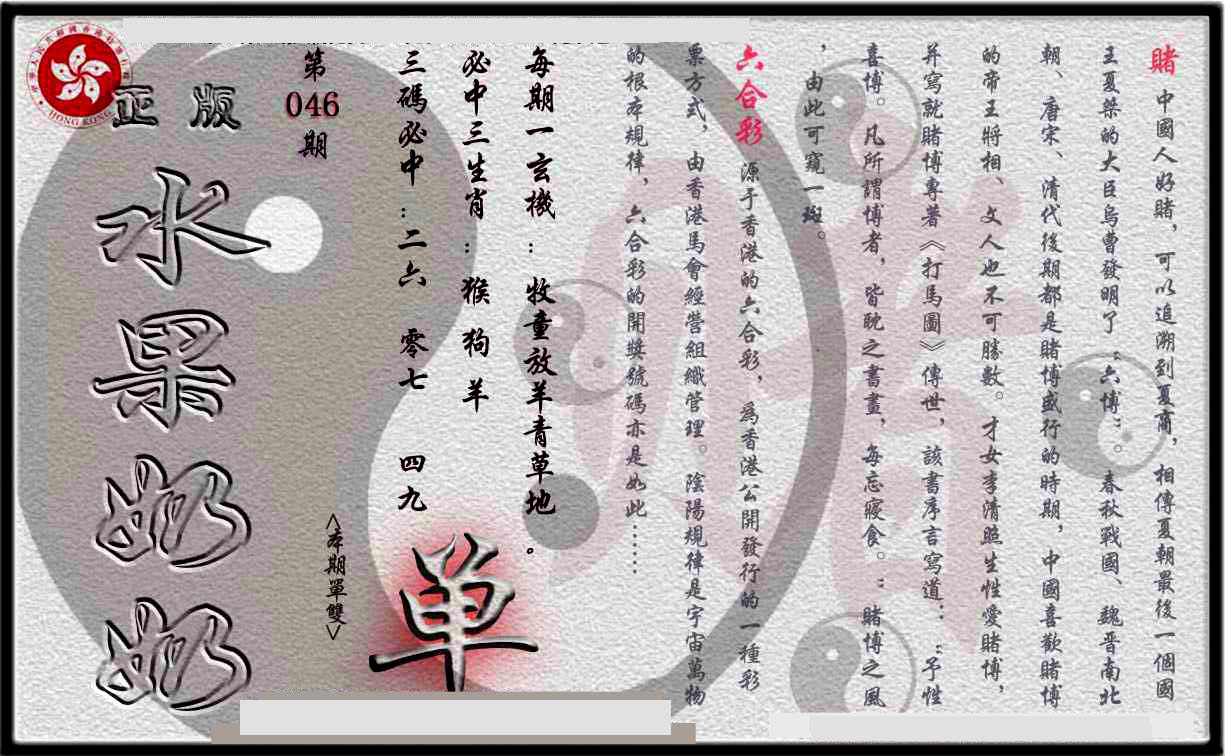 賭 中國人好賭，可以追溯到夏商，相傳夏朝最後一個國
王夏桀的大臣烏曹發明了“六博”。春秋戰國、魏晋南北
朝、唐宋、清代後期都是賭博盛行的時期，中國喜歡賭博
的帝王將相、文人也不可勝數。才女李清照生性愛賭博，
并寫就賭博專著《打馬圖》傳世，該書序言寫道：“予性
喜博。凡所謂博者，皆耽之書晝，每忘寢食。”賭博之風
，由此可窺一斑。
六合彩 源于香港的六合彩，爲香港公開發行的一種彩
票方式，由香港馬會經營組織管理。陰陽規律是宇宙萬物
的根本規律，六合彩的開獎號碼亦是如此……
每期一玄機：牧童放羊青草地。
必中三生肖：猴 狗 羊
三碼必中：二六 零七 四九
<本期單雙>
单
第046期
正版
水果奶奶
HONG KONG